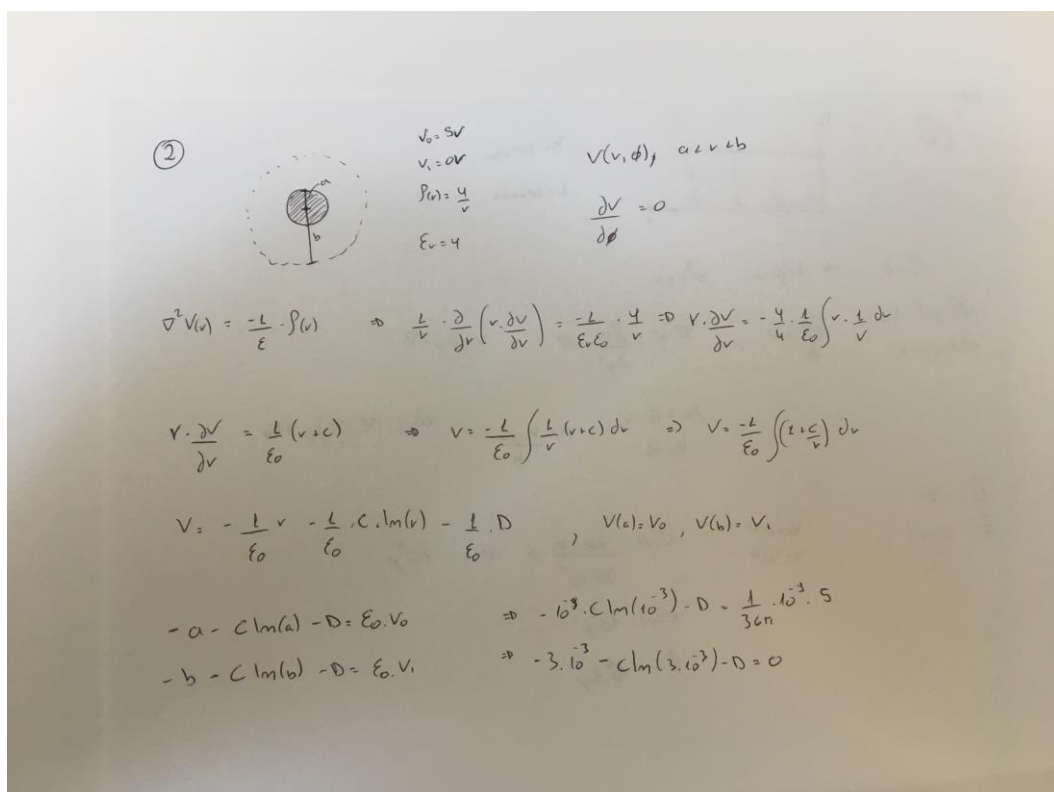 ②
a
b
V₀ = 5V
V₁ = 0V
ρ(r) = 4/r
εr = 4
V(r,ϕ), a<r<b
∂V/∂ϕ = 0
∇²V(r) = -1/ε · ρ(r) ⇒ 1/r · ∂/∂r (r · ∂V/∂r) = -1/(εr ε₀) · 4/r ⇒ r · ∂V/∂r = -4/4 · 1/ε₀ ∫ r · 1/r dr
r · ∂V/∂r = 1/ε₀ (r+c) ⇒ V = -1/ε₀ ∫ 1/r (r+c) dr ⇒ V = -1/ε₀ ∫ (1 + c/r) dr
V = -1/ε₀ r - 1/ε₀ · C · ln(r) - 1/ε₀ · D , V(a) = V₀ , V(b) = V₁
-a - C ln(a) - D = ε₀ · V₀ ⇒ -10⁻³ · C ln(10⁻³) - D = 1/36π · 10⁻⁹ · 5
-b - C ln(b) - D = ε₀ · V₁ ⇒ -3 · 10⁻³ - C ln(3 · 10⁻³) - D = 0